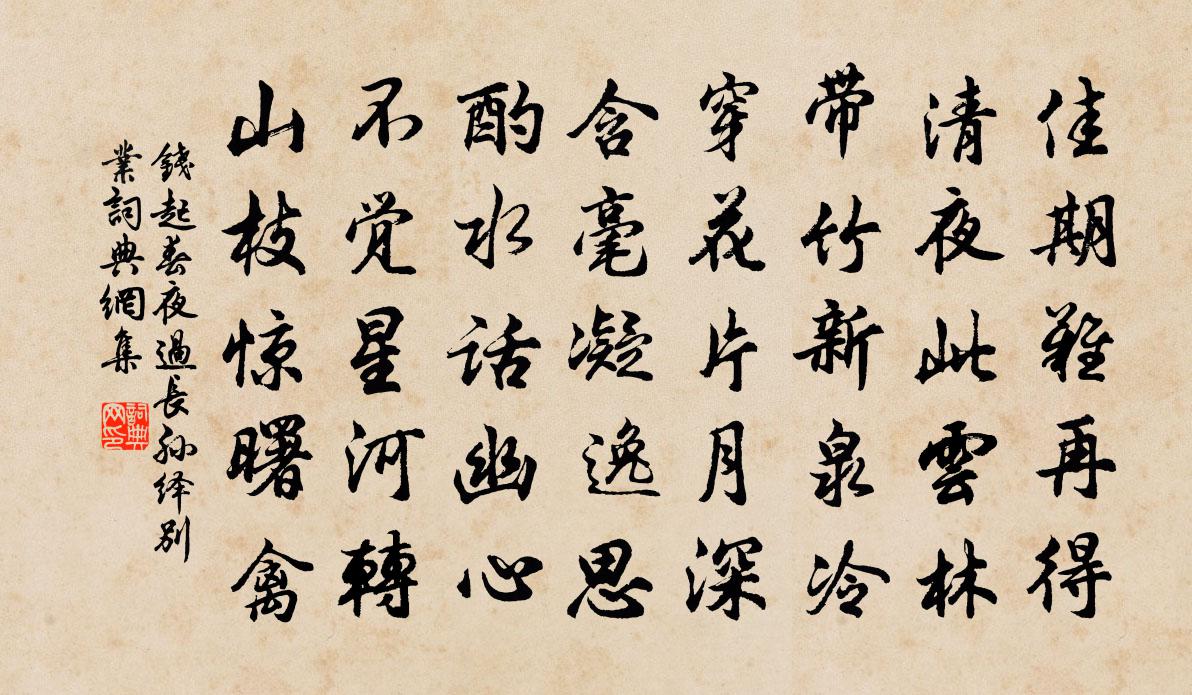 佳期難再得
清夜此雲林
带竹新泉冷
穿花片月深
含毫凝逸思
酌水话幽心
不觉星河轉
山枝惊曙禽
錢起春夜過長孙绎別
業詞典網集
詞典网印